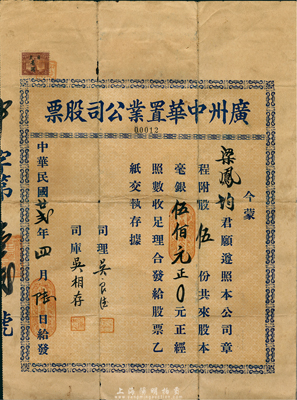 廣州中華置業公司股票
00012
今蒙
梁鳳均君願遵照本公司章
程附股伍份共來股本
毫銀伍佰元正0元正經
照數收足理合發給股票乙
紙交執存據
司理吳
司庫吳相存
中華民國廿貳年四月陸日給發
字第 號
上海陽明拍賣